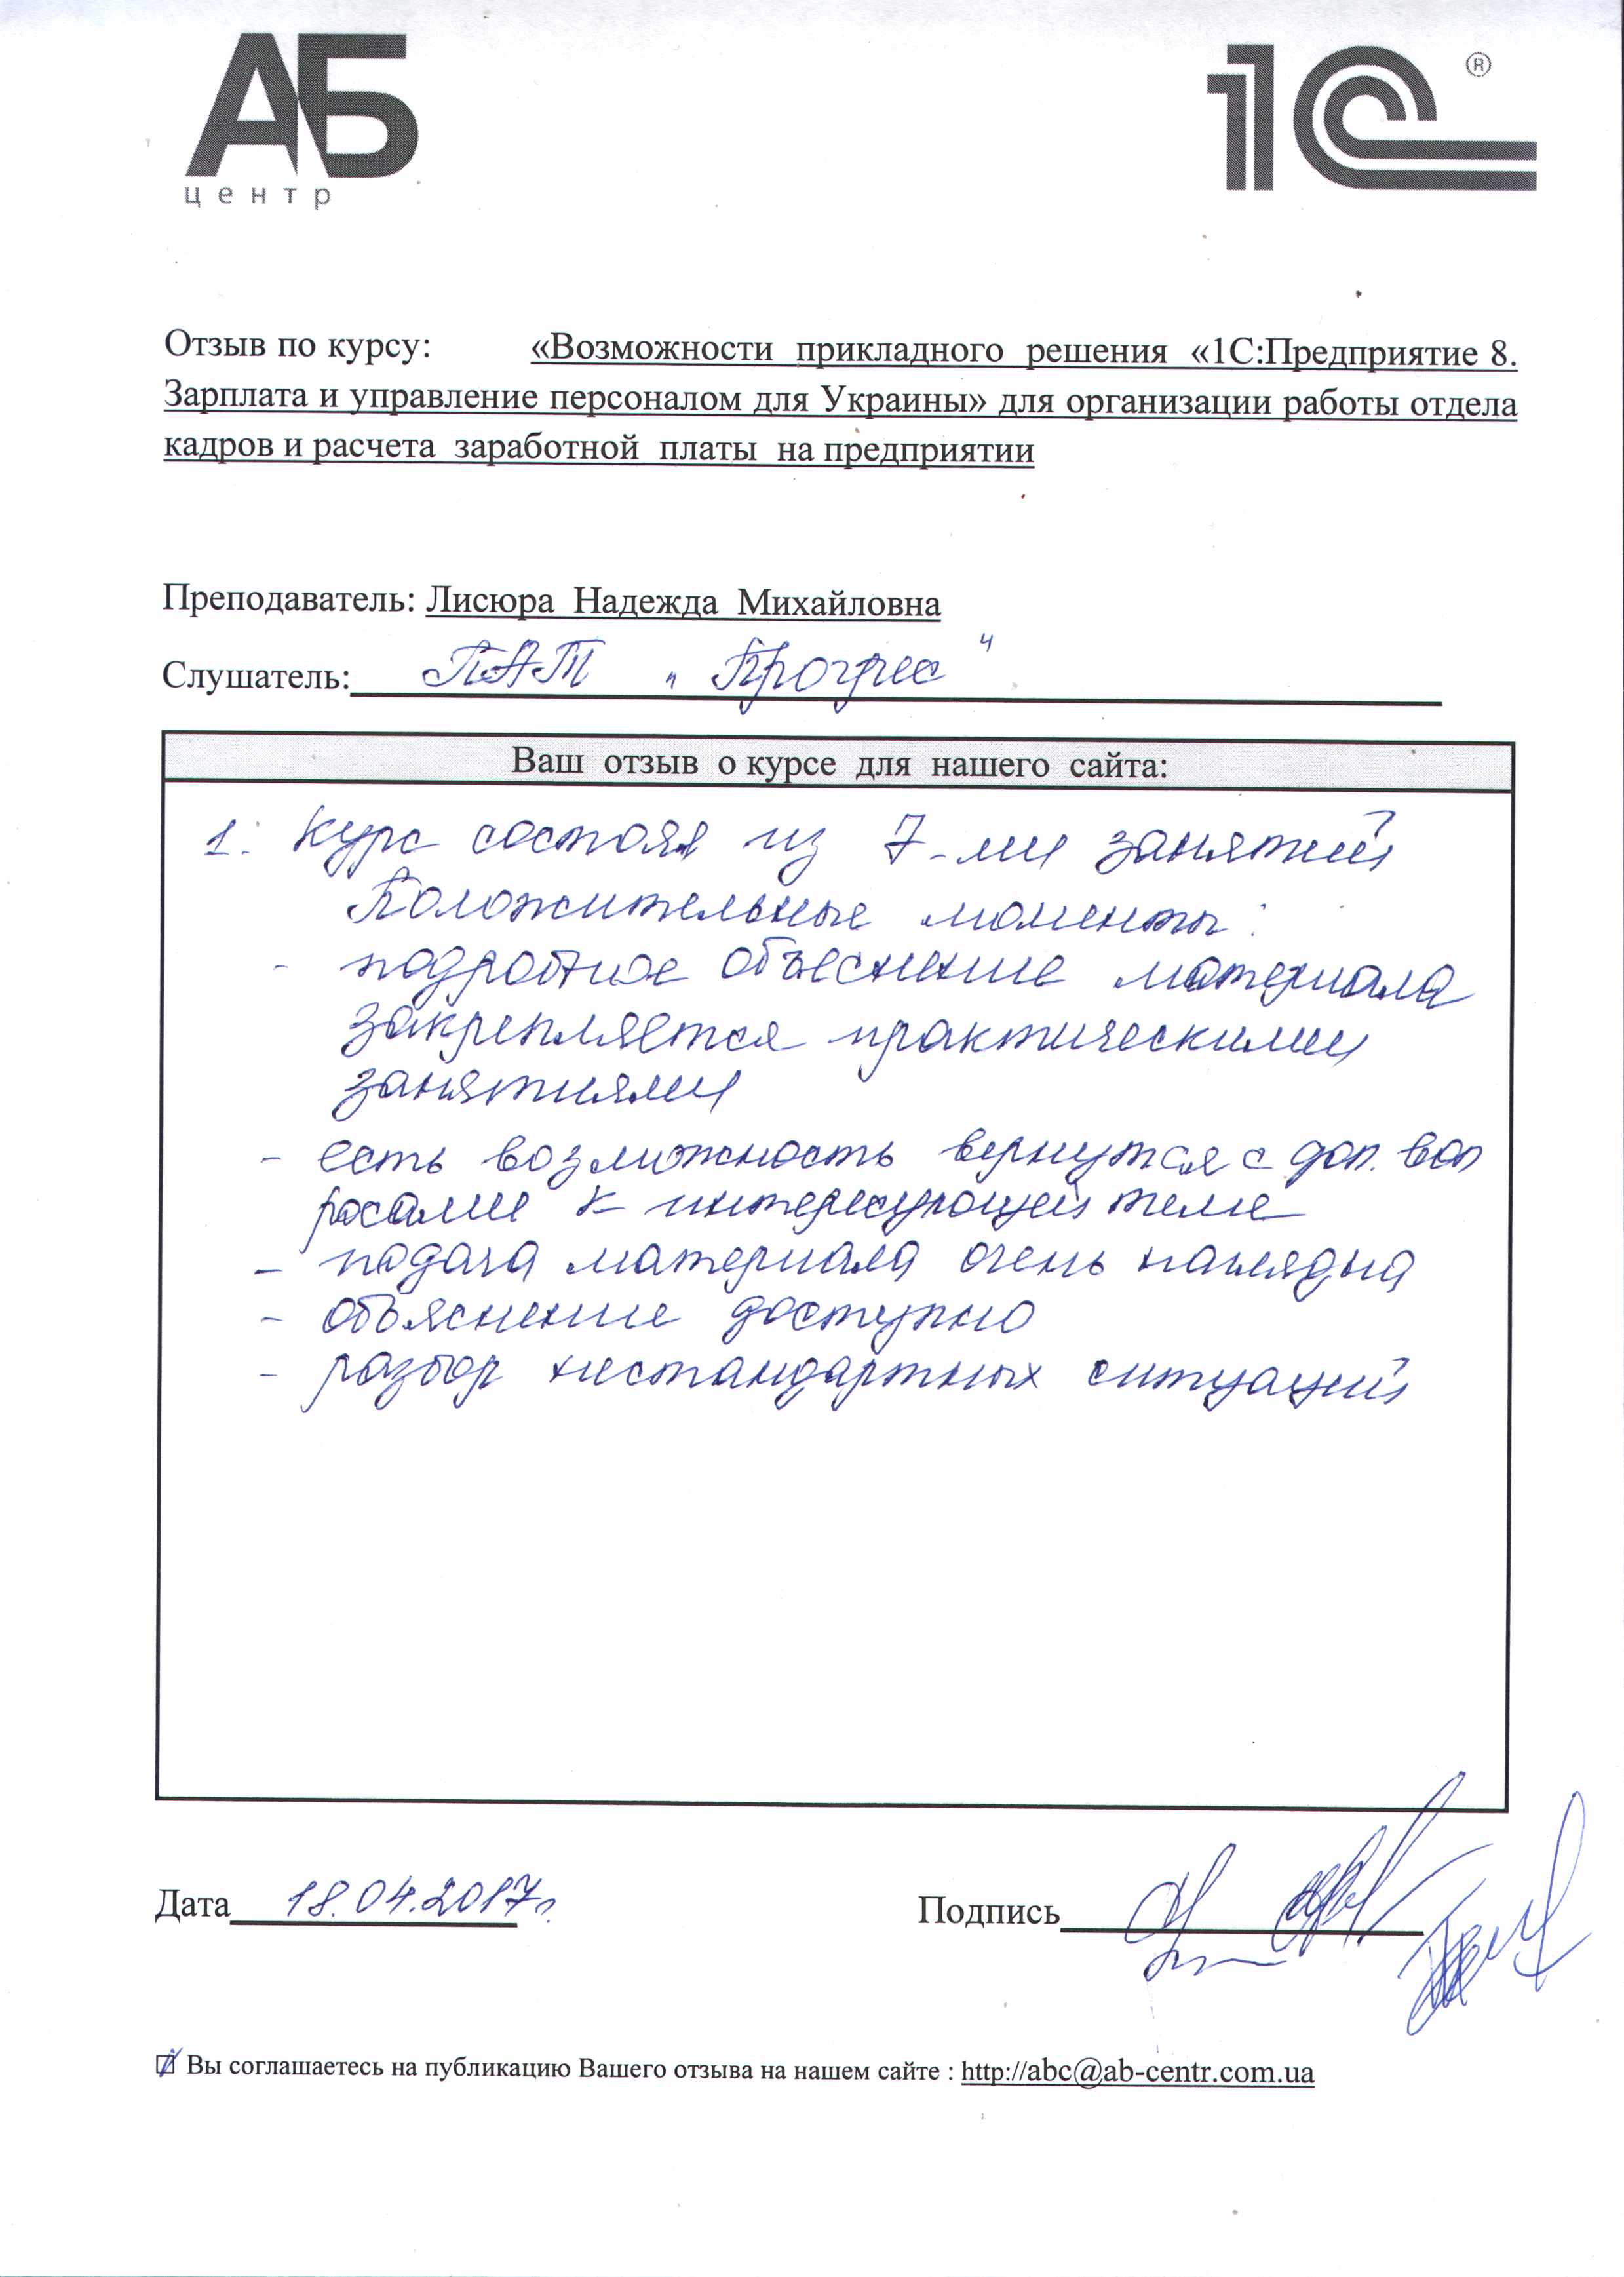 АБ
центр
1С ®
Отзыв по курсу: «Возможности прикладного решения «1С:Предприятие 8.
Зарплата и управление персоналом для Украины» для организации работы отдела
кадров и расчета заработной платы на предприятии
Преподаватель: Лисюра Надежда Михайловна
Слушатель: ПАТ "Прогрес"
Ваш отзыв о курсе для нашего сайта:
1. Курс состоял из 7-ми занятий
Положительные моменты:
- подробное объеснение материала
закрепляется практическими
занятиями
- есть возможность вернутся с доп. воп
росами к интересующей теме
- подача материала очень наглядна
- объяснение доступно
- разбор нестандартных ситуаций
Дата 18.04.2017г. Подпись
Вы соглашаетесь на публикацию Вашего отзыва на нашем сайте : http://abc@ab-centr.com.ua